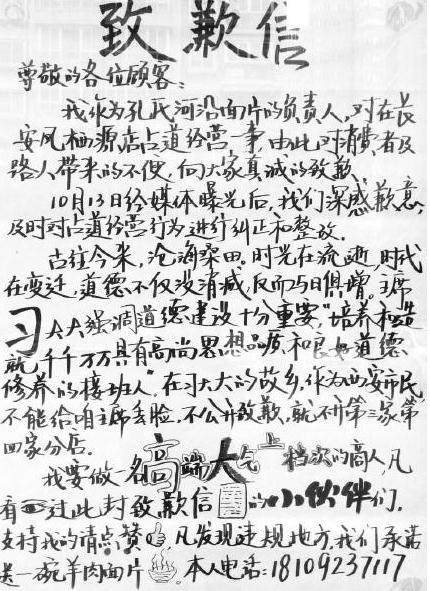 致歉信
尊敬的各位顾客:
我作为孔氏河沿面片的负责人,对在长
安凤栖源店占道经营一事,由此对消费者及
路人带来的不便,向大家真诚的致歉。
10月13日经媒体曝光后,我们深感歉意,
及时对占道经营行为进行纠正和整改。
古往今来,沧海桑田。时光在流逝,时代
在变迁,道德不仅没消减,反而与日俱增。主席
习大大强调道德建设十分重要,"培养和造
就千千万万具有高尚思想品质,和良好道德
修养的接班人"在习大大的故乡,作为西安市民,
不能给咱主席丢脸,不公开致歉,就不开第三家,第
四家分店。
我要做一名高端大气上档次的商人,凡
看过此封致歉信的小伙伴们,
支持我的请点赞,凡发现违规地方,我们承诺
送一碗羊肉面片。本人电话:18109237117